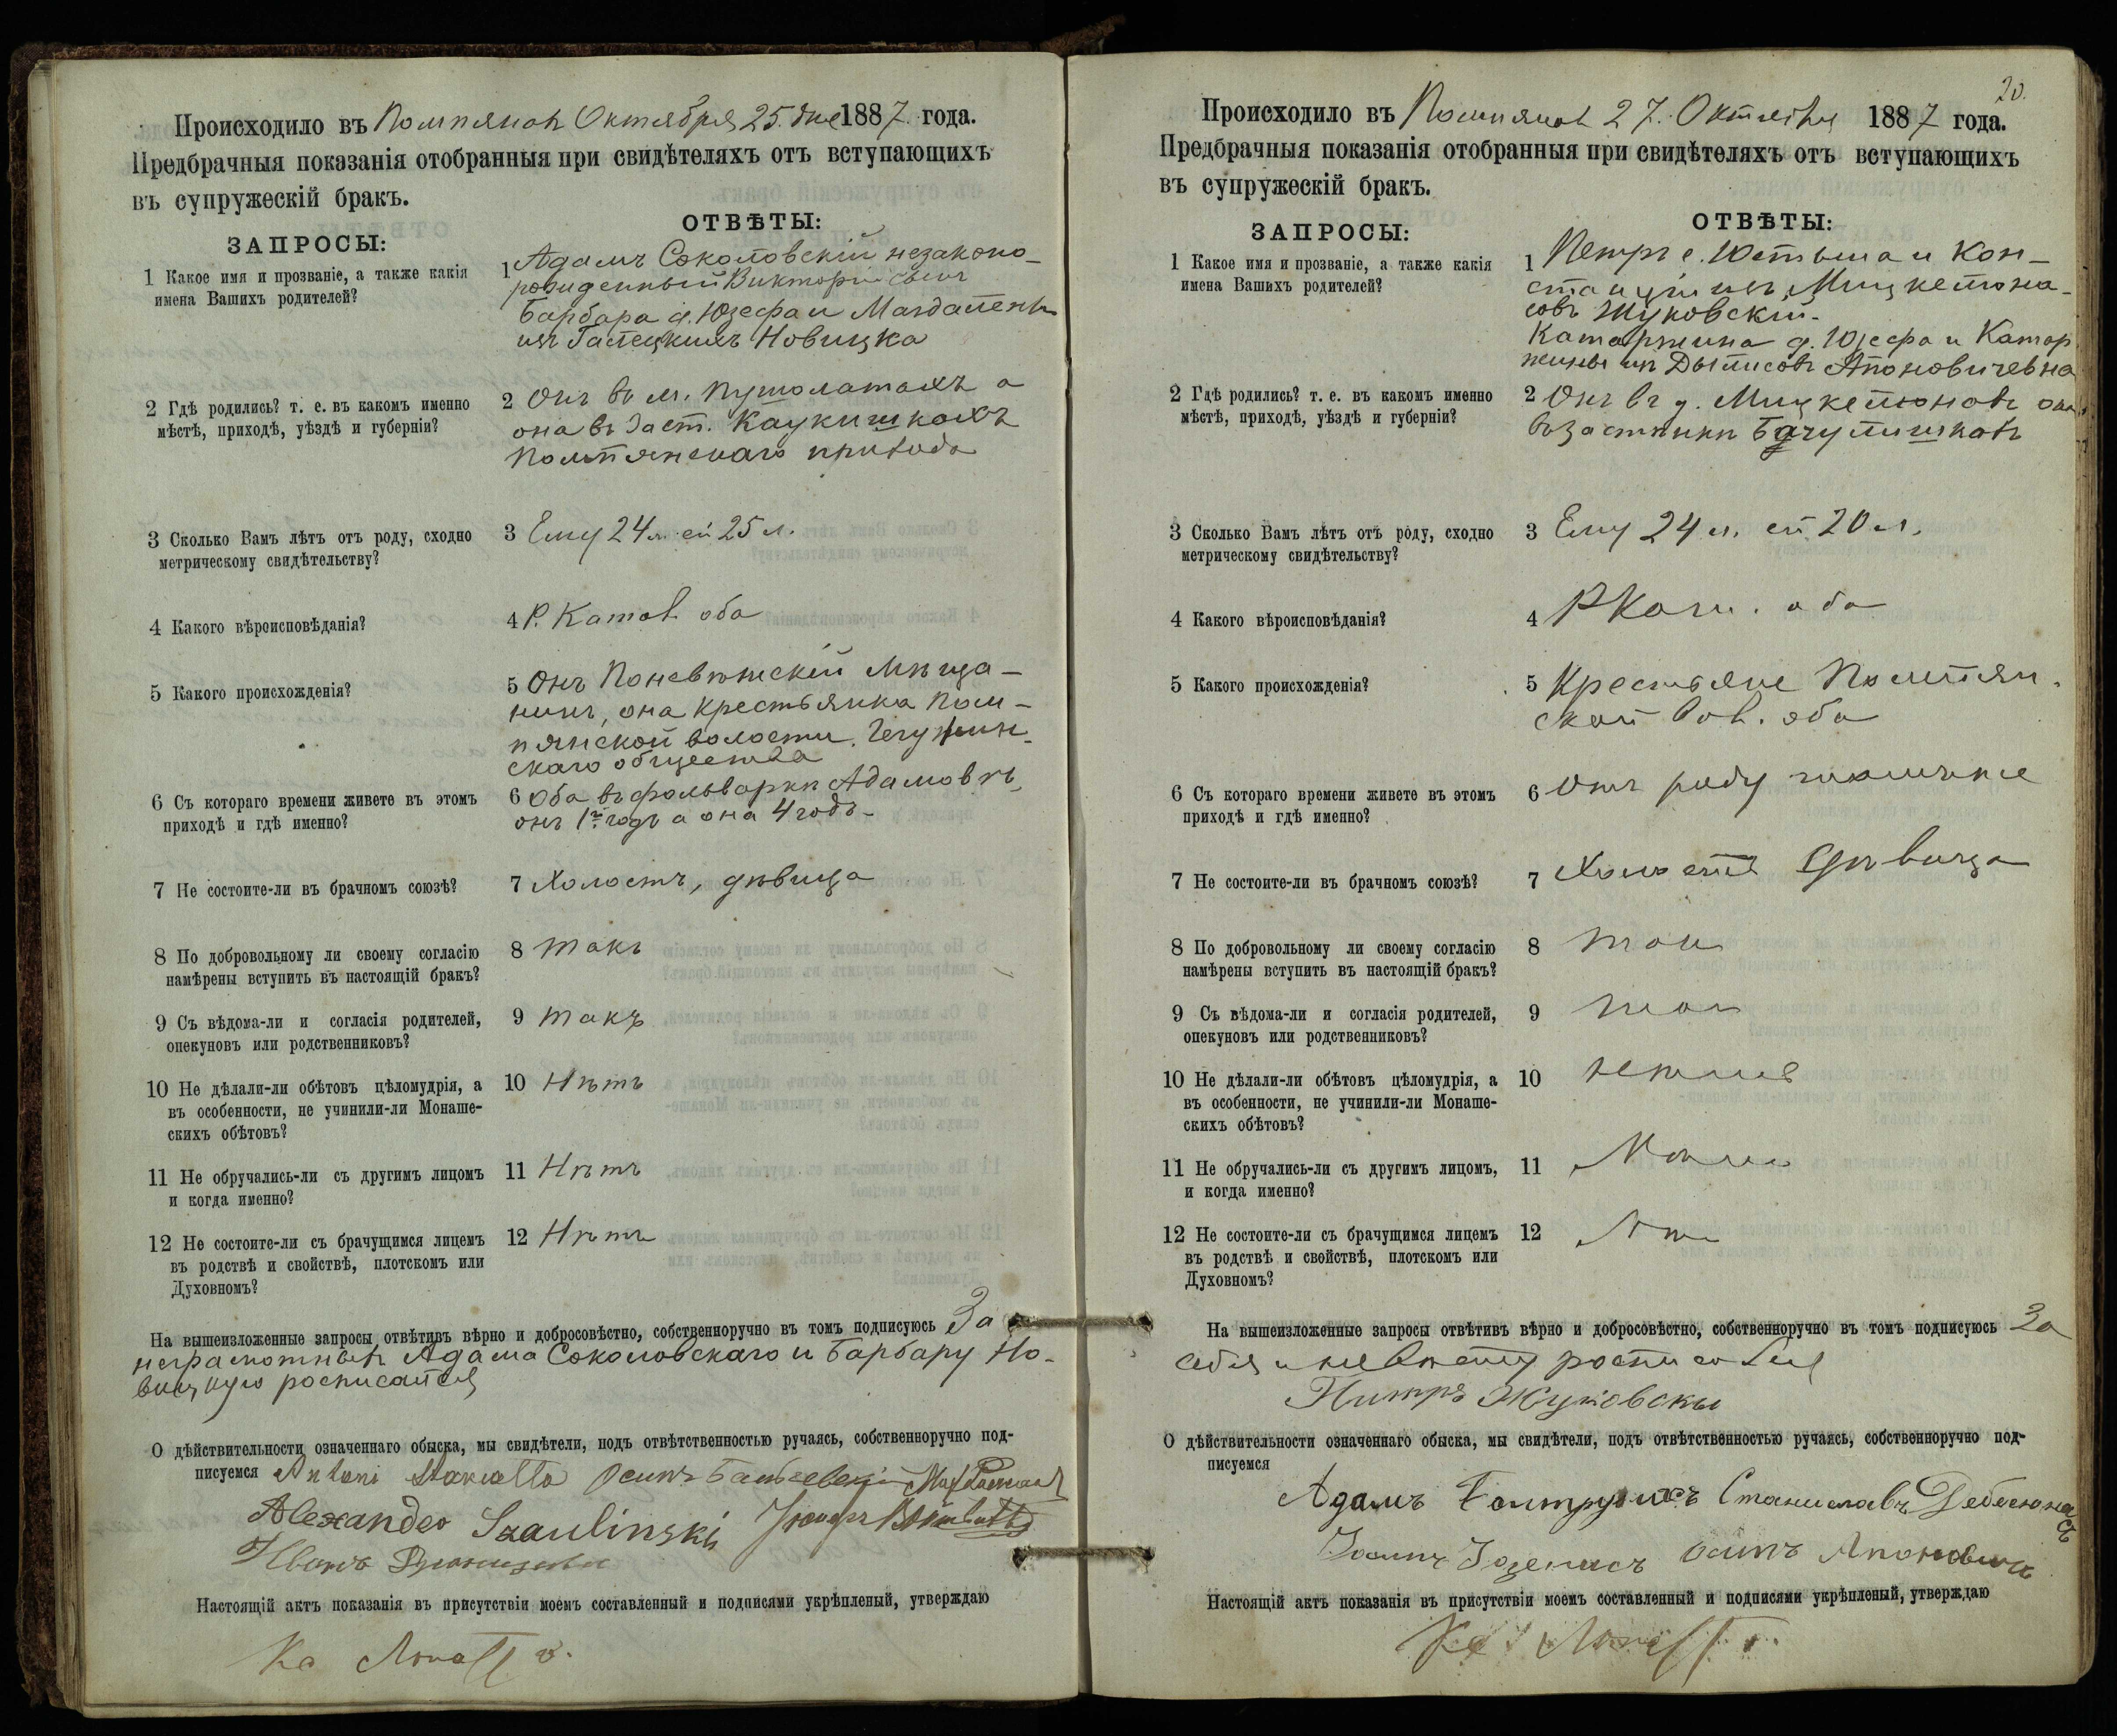 Происходило въ Помпянах Октября 25. дня 1887. года.
Предбрачныя показанія отобранныя при свидѣтеляхъ отъ вступающихъ
въ супружескій бракъ.
ЗАПРОСЫ:
ОТВѢТЫ:
1 Какое имя и прозваніе, а также какія
имена Вашихъ родителей?
1 Адамъ Соколовскій незаконо-
рожденный Викторіи сынъ
Барбара д. Юзефа и Магдалены
изъ Новицка
2 Гдѣ родились? т. е. въ какомъ именно
мѣстѣ, приходѣ, уѣздѣ и губерніи?
2 Онъ въ м. Пушолатахъ а
она въ заст. Каукишкахъ
Помпянскаго прихода
3 Сколько Вамъ лѣтъ отъ роду, сходно
метрическому свидѣтельству?
3 Ему 24 л. ей 25 л.
4 Какого вѣроисповѣданія?
4 Р. Катол. оба
5 Какого происхожденія?
5 Онъ Поневѣжскій мѣща-
нинъ, она крестьянка Пом-
пянской волости.
скаго общества
6 Съ котораго времени живете въ этомъ
приходѣ и гдѣ именно?
6 Оба въ фольваркѣ Адамовѣ,
онъ 1й годъ а она 4 годъ.
7 Не состоите-ли въ брачномъ союзѣ?
7 Холостъ, дѣвица
8 По добровольному ли своему согласію
намѣрены вступить въ настоящій бракъ?
8 такъ
9 Съ вѣдома-ли и согласія родителей,
опекуновъ или родственниковъ?
9 такъ
10 Не дѣлали-ли обѣтовъ цѣломудрія, а
въ особенности, не учинили-ли Монаше-
скихъ обѣтовъ?
10 Нѣтъ
11 Не обручались-ли съ другимъ лицомъ
и когда именно?
11 Нѣтъ
12 Не состоите-ли съ брачущимся лицемъ
въ родствѣ и свойствѣ, плотскомъ или
Духовномъ?
12 Нѣтъ
На вышеизложенные запросы отвѣтивъ вѣрно и добросовѣстно, собственноручно въ томъ подписуюсь За
неграмотныхъ Адама Соколовскаго и Барбару Но-
вицкую росписался
О дѣйствительности означеннаго обыска, мы свидѣтели, подъ отвѣтственностью ручаясь, собственноручно под-
писуемся Antoni Осипъ
Alexander Szaulinski
Иванъ
Настоящій актъ показанія въ присутствіи моемъ составленный и подписями укрѣпленый, утверждаю
20.
Происходило въ Помпянах 27. Октября 1887 года.
Предбрачныя показанія отобранныя при свидѣтеляхъ отъ вступающихъ
въ супружескій бракъ.
ЗАПРОСЫ:
ОТВѢТЫ:
1 Какое имя и прозваніе, а также какія
имена Вашихъ родителей?
1 Петръ с. Юстына и Кон-
станціи изъ Мицкетюна-
совъ Жуковскій.
Катаржина д. Юзефа и Катар
жины изъ Дылисовъ Апоновичевна
2 Гдѣ родились? т. е. въ какомъ именно
мѣстѣ, приходѣ, уѣздѣ и губерніи?
2 Онъ въ д. Мицкетюновъ она
въ застѣнкѣ Бачулишкахъ
3 Сколько Вамъ лѣтъ отъ роду, сходно
метрическому свидѣтельству?
3 Ему 24 л. ей 20 л.
4 Какого вѣроисповѣданія?
4 РКати. оба
5 Какого происхожденія?
5 Крестьяне Помпян.
ской вол. оба
6 Съ котораго времени живете въ этомъ
приходѣ и гдѣ именно?
6 Отъ роду тамъже
7 Не состоите-ли въ брачномъ союзѣ?
7 Холостъ Дѣвица
8 По добровольному ли своему согласію
намѣрены вступить въ настоящій бракъ?
8 так
9 Съ вѣдома-ли и согласія родителей,
опекуновъ или родственниковъ?
9 так
10 Не дѣлали-ли обѣтовъ цѣломудрія, а
въ особенности, не учинили-ли Монаше-
скихъ обѣтовъ?
10
11 Не обручались-ли съ другимъ лицомъ,
и когда именно?
11
12 Не состоите-ли съ брачущимся лицемъ
въ родствѣ и свойствѣ, плотскомъ или
Духовномъ?
12
На вышеизложенные запросы отвѣтивъ вѣрно и добросовѣстно, собственноручно въ томъ подписуюсь За
себя и невѣсту росписался
Питръ Жуковскы
О дѣйствительности означеннаго обыска, мы свидѣтели, подъ отвѣтственностью ручаясь, собственноручно под-
писуемся
Адамъ Станиславъ Дебесюнасъ
Осипъ Апоновичъ
Настоящій актъ показанія въ присутствіи моемъ составленный и подписями укрѣпленый, утверждаю